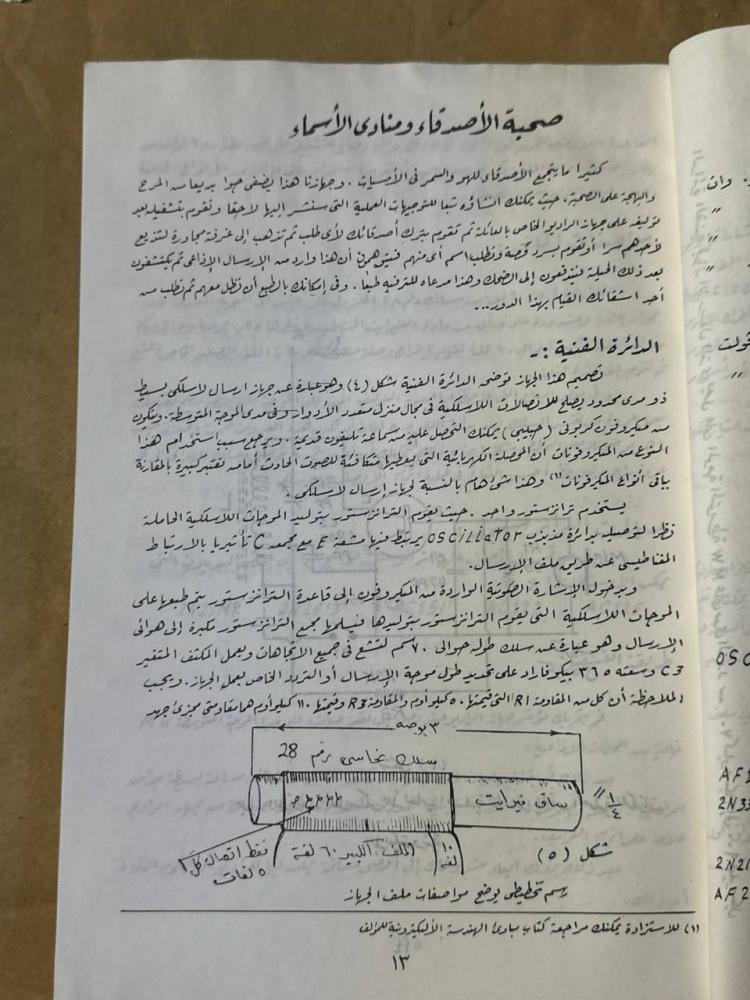 صحبة الأصدقاء ومنادى الأسماء
كثيرا ما يتجمع الأصدقاء للهو والسمر فى الأمسيات . وجهازنا هذا يضفى جوا بديعا من المرح
والبهجة على الصحبة . حيث يمكنك انشاؤه تبعا للتوجيهات العملية التى سنشير إليها لاحقا وتقوم بتشغيله بعد
توليفه على جهاز الراديو الخاص بالعائلة ثم تقوم بترك أصدقائك لأى طلب ثم تذهب إلى غرفة مجاورة لتذيع
لأحدهم سرا أو تقوم بسرد قصة وتطلب اسم أى منهم فيتوهمون أن هذا وارد من الإرسال الإذاعى ثم يكتشفون
بعد ذلك الحيلة فيندفعون إلى الضحك وهذا مدعاه للترفيه طبعا . وفى إمكانك بالطبع أن تظل معهم ثم تطلب من
أحد اشقائك القيام بهذا الدور...
الدائرة الفنية :-
تصميم هذا الجهاز توضحه الدائرة الفنية شكل (٤) وهو عبارة عن جهاز ارسال لاسلكى بسيط
ذو مدى محدود يصلح للاتصالات اللاسلكية فى مجال منزل متعدد الأدوار وفى مدى الموجة المتوسطة . ويتكون
من ميكروفون كربونى (حبيبى) يمكنك التحصل عليه من سماعة تليفون قديمة . ويرجع سبب استخدام هذا
النوع من الميكروفونات أن المحصلة الكهربائية التى يعطيها متكافئة للصوت الحادث أمامه تعتبر كبيرة بالمقارنة
بباقى أنواع الميكروفونات (١) وهذا شئ هام بالنسبة لجهاز إرسال لاسلكى .
يستخدم ترانزستور واحد . حيث يقوم الترانزستور بتوليد الموجات اللاسلكية الحاملة
نظرا لتوصيله بدائرة مذبذب oscillator يرتبط فيها مشعه E مع مجمعه C تأثيريا بالارتباط
المغناطيسى عن طريق ملف الإرسال.
وبدخول الإشارة الصوتية الواردة من الميكروفون إلى قاعدة الترانزستور يتم طبعها على
الموجات اللاسلكية التى يقوم الترانزستور بتوليدها فيسلمها مجمع الترانزستور مكبرة إلى هوائى
الإرسال وهو عبارة عن سلك طوله حوالى ٧٠ سم لتشع فى جميع الاتجاهات ويعمل المكثف المتغير
C3 وسعته ٣٦٥ بيكوفاراد على تحديد طول موجة الإرسال أو التردد الخاص بعمل الجهاز . ويجب
الملاحظة أن كل من المقاومة R1 التى قيمتها ٥٠ كيلو أوم والمقاومة R3 وقيمتها ١١٠ كيلو أوم هما مقاومتى مجزئ جهد
٣ بوصه
سلك نحاسى رقم 28
ساق فيرايت
١/٤ "
نقط اتصال كل
٥ لفات
الملف الكبير ٦٠ لفة
١٠
لفه
شكل (٥)
رسم تخطيطى يوضح مواصفات ملف الجهاز
(١) للاستزادة يمكنك مراجعة كتاب مبادئ الهندسة الأليكترونية للمؤلف
١٣
. وان
"
"
"
ڤولت
"
OSC
AF2
2N33
2N21
AF2